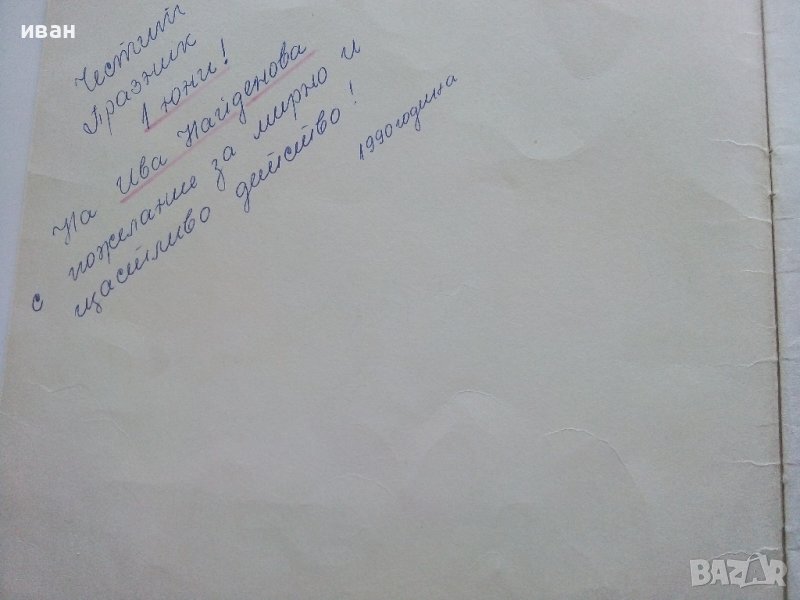 иван
Честит
Празник
1 юни!
На Ива Найденова
с пожелание за мирно и
щастливо детство!
1990 година
BAZAR